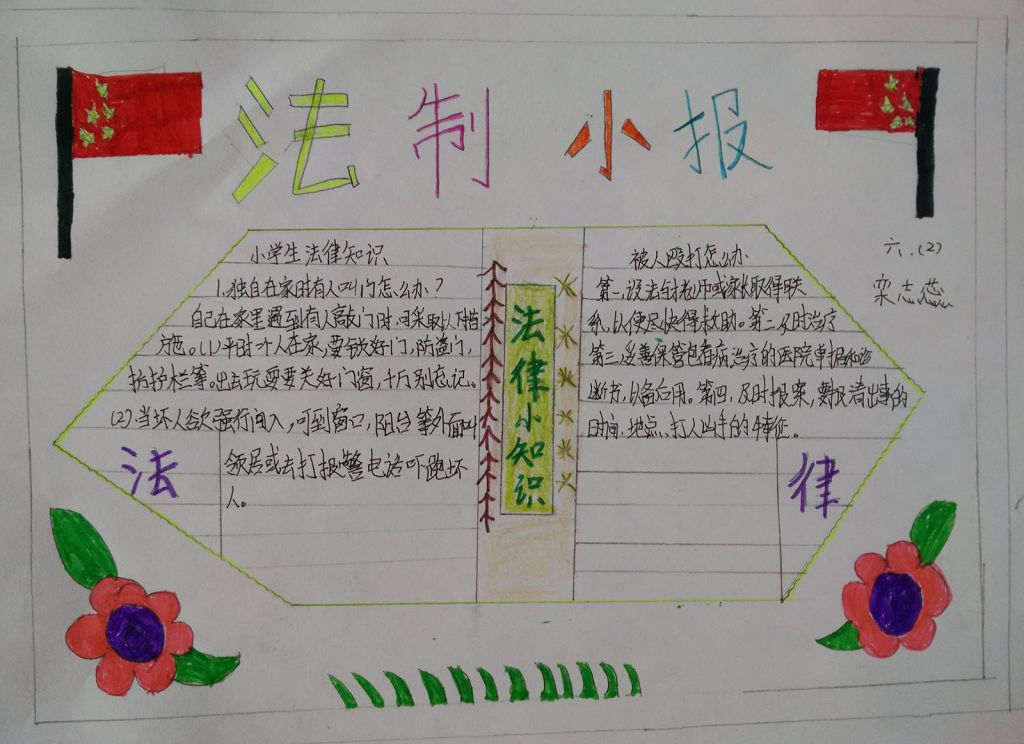 法制小报
六.(2)
栾志蕊
小学生法律知识
1.独自在家时有人叫门怎么办?
自己在家里遇到有人敲门时,可采取以下措
施。(1)平时一个人在家,要锁好门,防盗门,
防护栏等。出去玩耍要关好门窗,千万别忘记。
(2).当坏人欲强行闯入,可到窗口,阳台等外面叫
领居或去打报警电话吓跑坏
人。
法
法律小知识
被人殴打怎么办
第一.设法
或家长取得联
系,以便尽快得救助。第二及时治疗
第三妥善保管包看病治疗的医院单据和诊
断书,以备后用。第四,及时报案,要说清出事的
时间.地点、打人凶手的特征。
律